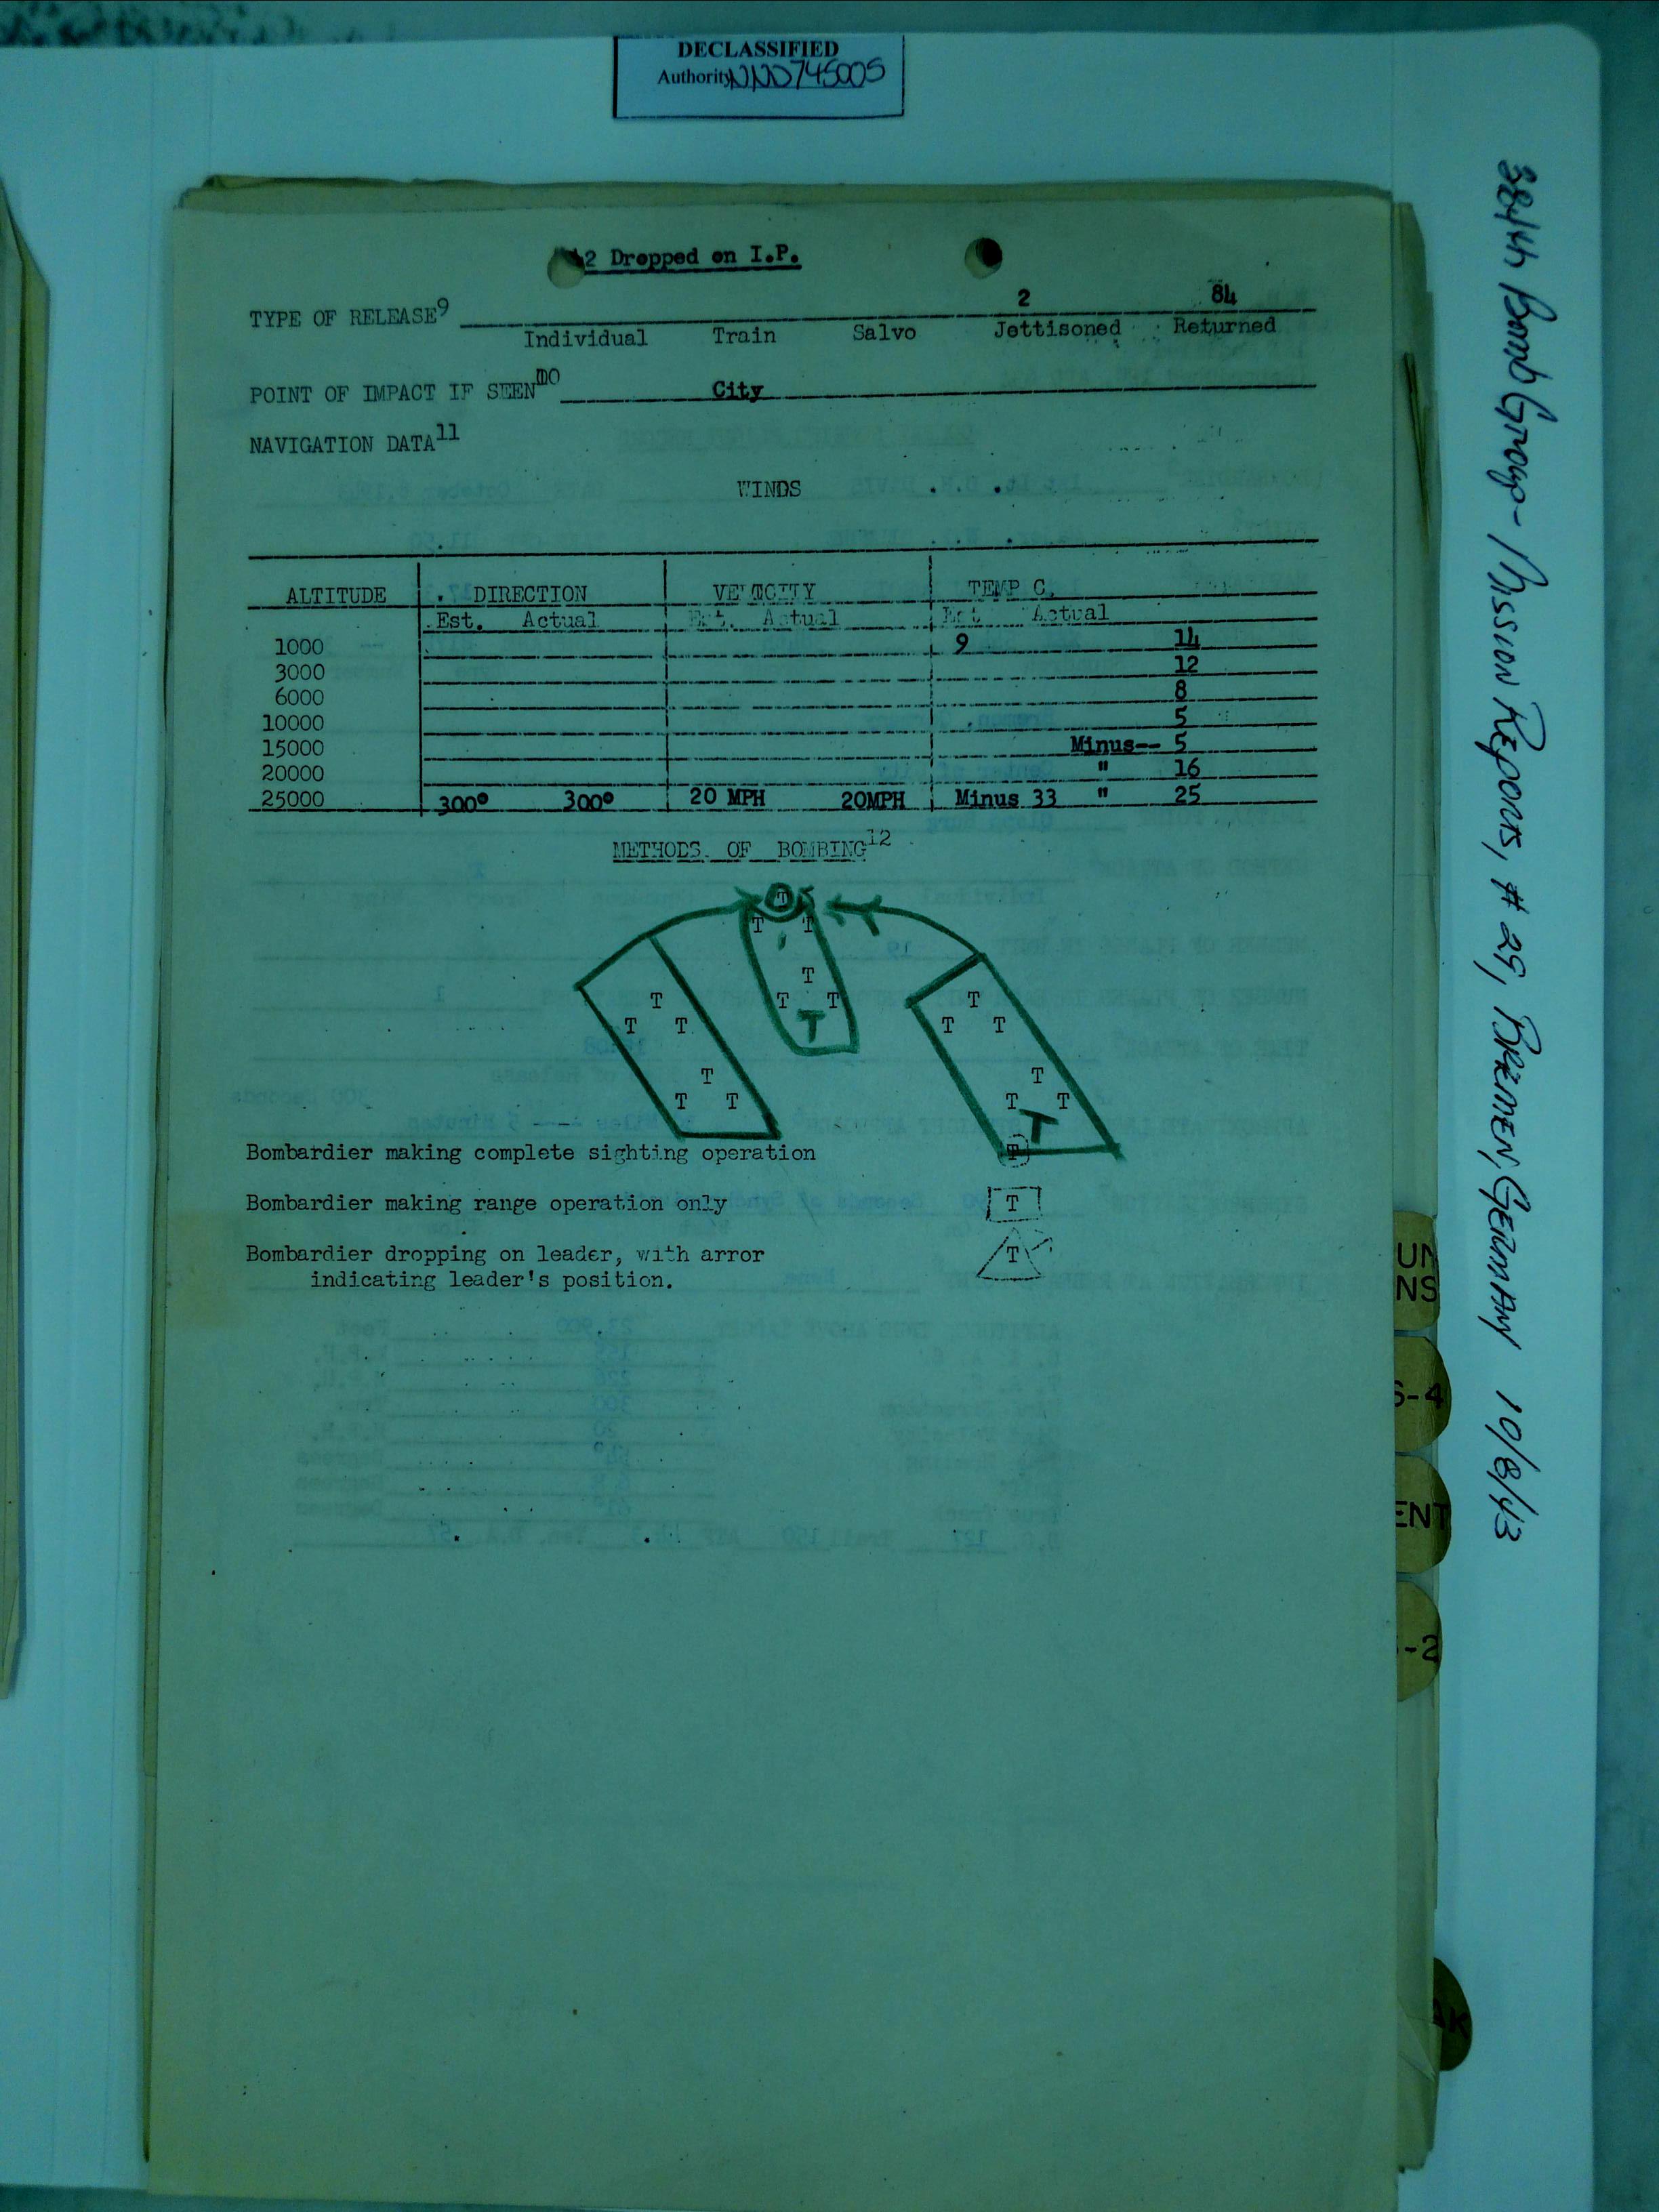 DECLASSIFIED
Authority NND745005
384th Bomb Group - Mission Reports, # 29, Bremen, Germany 10/8/43
2 Dropped on I.P.
2 84
TYPE OF RELEASE9
Individual Train Salvo Jettisoned Returned
POINT OF IMPACT IF SEEN City
NAVIGATION DATA11
WINDS
ALTITUDE DIRECTION VELOCITY TEMP C.
Est. Actual Est. Actual Est Actual
1000 9 14
3000 12
6000 8
10000 5
15000 Minus-- 5
20000 " 16
25000 300° 300° 20 MPH 20MPH Minus 33 " 25
METHODS OF BOMBING12
T
T T
T
T T
T
T
T T
T
T T
T
T T
T
T T
T
Bombardier making complete sighting operation T
Bombardier making range operation only T
Bombardier dropping on leader, with arror T
indicating leader's position.
UN
NS
S-4
ENT
-2
AK